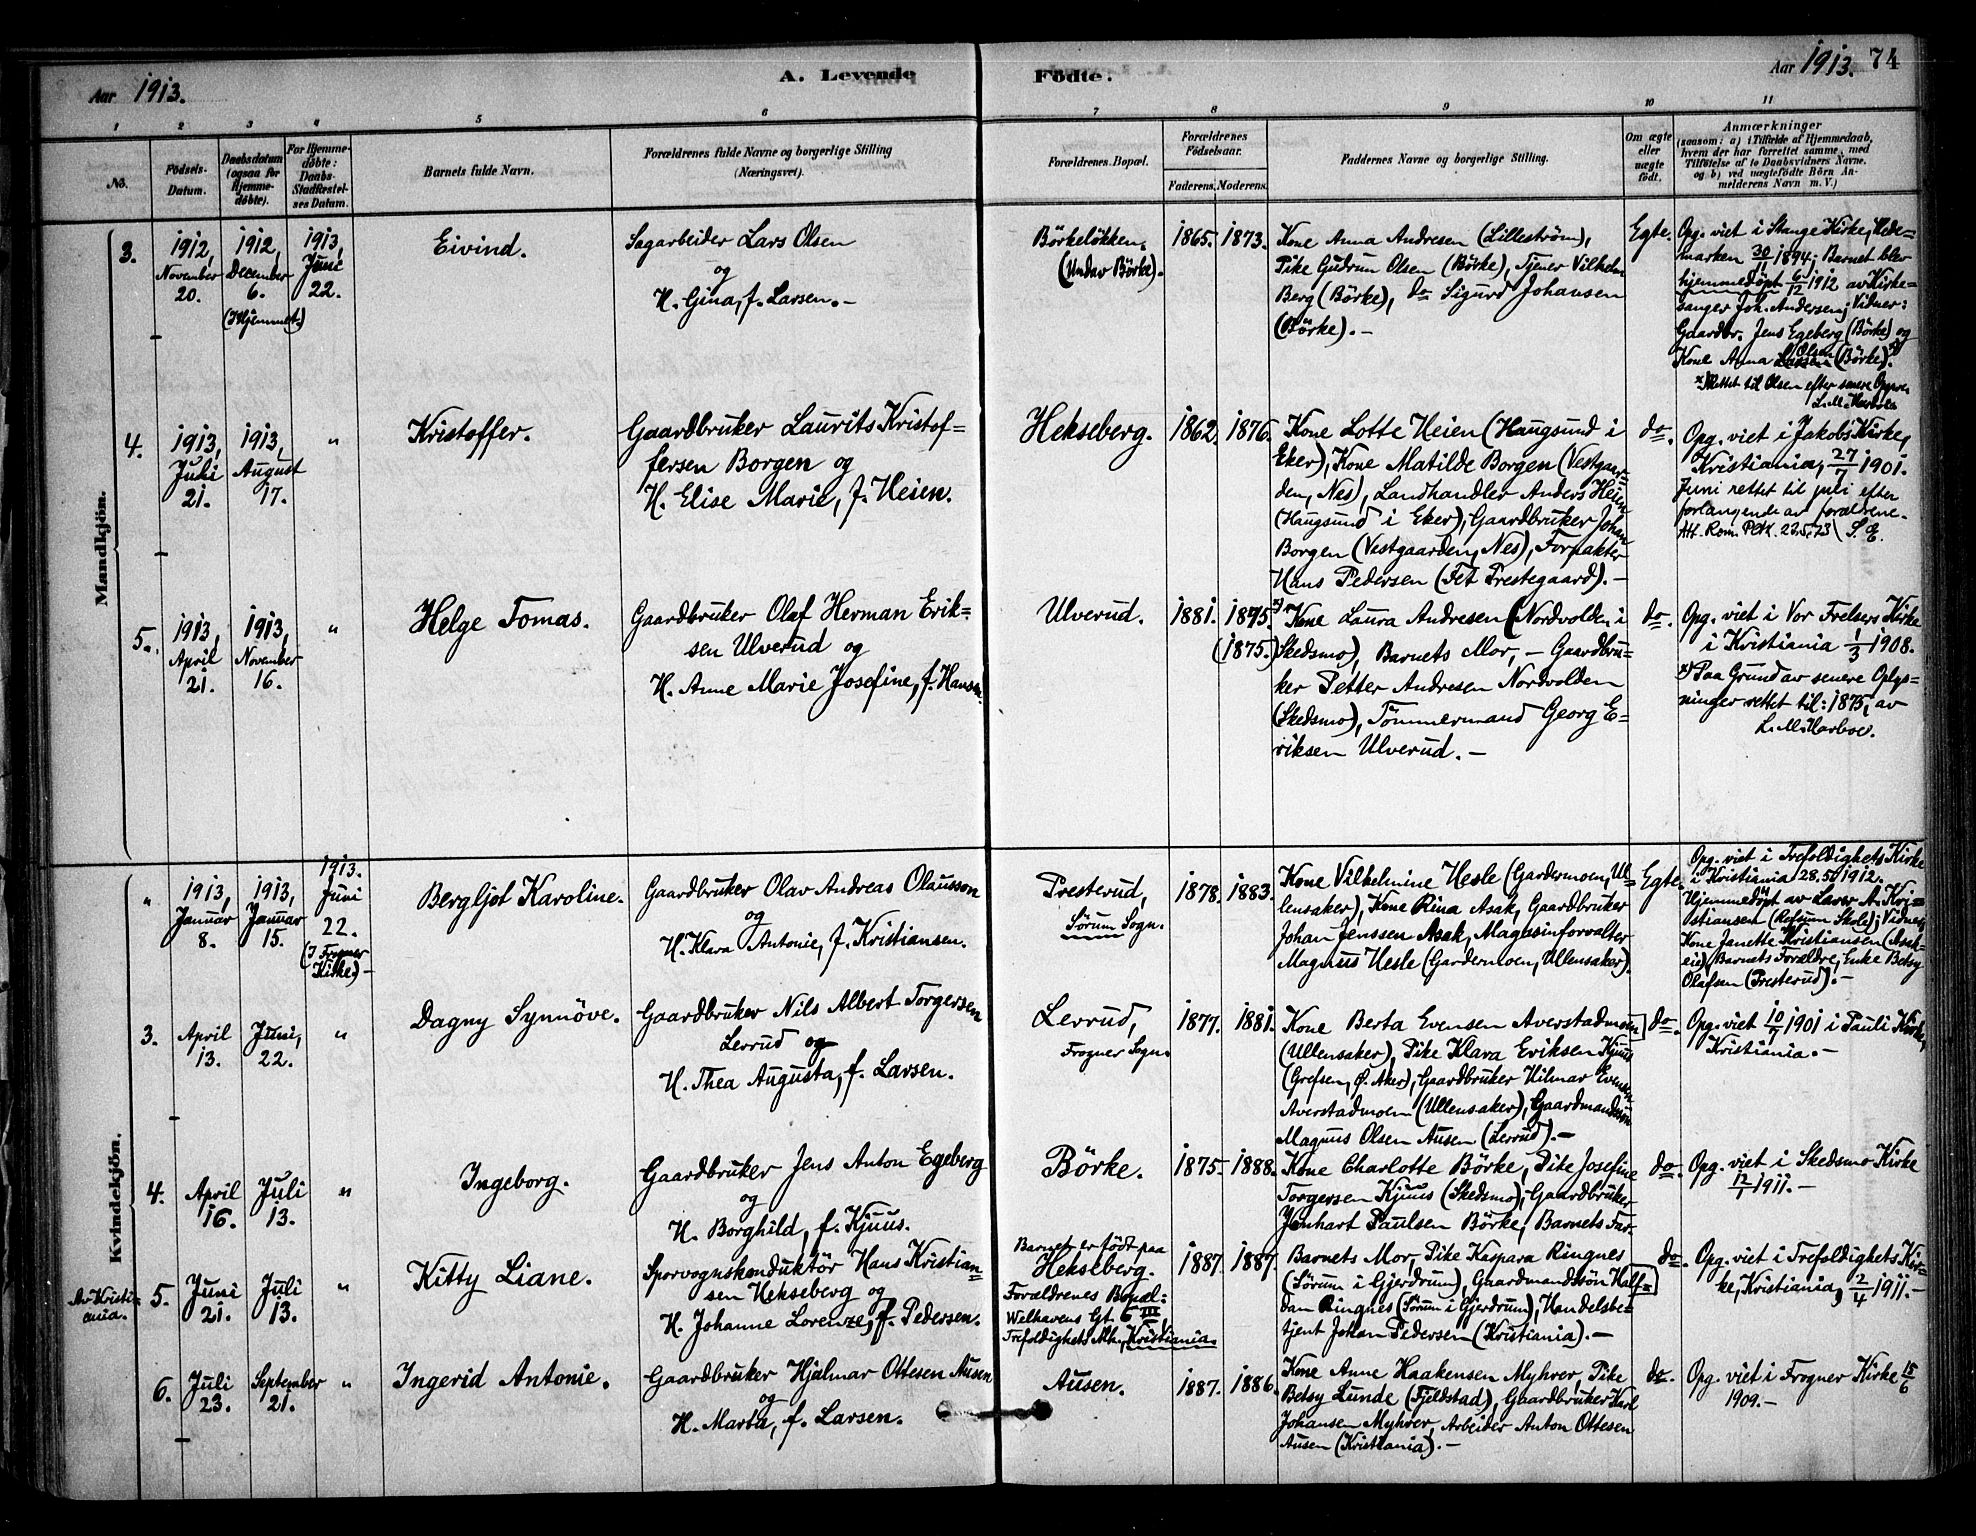 Aar 1913.
A. Levende
Födte.
Aar 1913. 74
1 2 3 4 5 6 7 8 9 10 11
No.
Födsels-
Datum.
Daabsdatum
(ogsaa for
Hjemme-
döbte).
For Hjemme-
döbte:
Daabs-
Stadfæstel-
ses Datum.
Barnets fulde Navn.
Forældrenes fulde Navne og borgerlige Stilling
(Næringsvei).
Forældrenes Bopæl.
Forældrenes
Födselsaar.
Faderens. Moderens.
Faddernes Navne og borgerlige Stilling.
Om ægte
eller
uægte
födt.
Anmærkninger
(saasom: a) i Tilfælde af Hjemmedaab,
hvem der har forrettet samme, med
Tilföielse af to Daabsvidners Navne,
og b) ved uægtefödte Börn An-
melderens Navn m. V.)
Mandkjön.
3.
1912,
November
20.
1912,
December
6.
(I Hjemmet.)
1913,
Juni
22.
Eivind.
Sagarbeider Lars Olsen
og
H. Gina, f. Larsen.-
Börkelökken,
(Under Börke).
1865. 1873.
Kone Anna Andresen (Lilleström),
Pike Gudrun Olsen (Börke), Tjener Vilhelm
Berg (Börke), do Sigurd Johansen
(Börke).-
Egte.
Opg. viet i Stange Kirke, Hede=
marken 30/11 1894; Barnet blev
hjemmedöpt 6/12 1912 av Kirke=
sanger Joh. Andersen; Vidner:
Gaardbr. Jens Egeberg (Börke) og
Kone Anna Larsen Olsen (Börke). x)
x) Rettet til Olsen efter senere Opgave
L. M. Harboe
4.
1913,
Juli
21.
1913,
August
17.
"
Kristoffer.
Gaardbruker Laurits Kristof=
fersen Borgen og
H. Elise Marie, f. Heien.
Hekseberg.
1862. 1876.
Kone Lotte Heien (Haugsund i
Eker), Kone Matilde Borgen (Vestgaar-
den, Nes), Landhandler Anders Heien
(Haugsund i Eker), Gaardbruker Johan
Borgen (Vestgaarden, Nes), Forpakter
Hans Pedersen (Fet Prestegaard).-
do.
Opg. viet i Jakobs Kirke,
Kristiania, 27/7 1901.
Juni rettet til juli efter
forlangende av forældrene.
Att. Rom. PGK. 22.5.73 S. E.
5.
1913,
April
21.
1913,
November
16.
"
Helge Tomas.
Gaardbruker Olaf Herman Erik=
sen Ulverud og
H. Anne Marie Josefine, f. Hansen.
Ulverud.
1881. 1875. x)
(1875.)
Kone Laura Andresen (Nordvolden i
Skedsmo), Barnets Mor, - Gaardbru-
ker Petter Andresen Nordvolden
(Skedsmo), Tömmermand Georg E=
riksen Ulverud.-
do.
Opg. viet i Vor Frelsers Kirke
i Kristiania 1/3 1908.
x) Paa Grund av senere Oplys=
ninger rettet til: 1875, av
L. M. Harboe.
Kvindekjön.
"
1913,
Januar
8.
1913,
Januar
15.
1913.
Juni
22.
(I Frogner
Kirke)-
Bergljot Karoline.
Gaardbruker Olav Andreas Olausson
og
H. Klara Antonie, f. Kristiansen.
Presterud,
Sörum Sogn.
1878. 1883.
Kone Vilhelmine Hesle (Gardermoen, Ul-
lensaker), Kone Rina Asak, Gaardbruker
Johan Jenssen Asak, Magasinforvalter
Magnus Hesle (Gardermoen, Ullensaker).
Egte.
Opg. viet i Trefoldighets Kirke
i Kristiania 28.5. 1912.
Hjemmedöpt av Lærer A. Kri-
stiansen (Refsum Skole); Vidner:
Kone Janette Kristiansen (Asak-
eie), Barnets Forældre, Enke Betsy
Olafsen (Presterud).-
3.
April
13.
Juni,
22.
"
Dagny Synnöve.
Gaardbruker Nils Albert Torgersen
Lerrud og
H. Thea Augusta, f. Larsen.
Lerrud,
Frogner Sogn.
1877. 1881.
Kone Berta Evensen Averstadmoen
(Ullensaker), Pike Klara Eriksen Kjuus
(Grefsen, Ö. Aker), Gaardbruker Hilmar Evensen
Averstadmoen (Ullensaker), Gaardmandssön
Magnus Olsen Ausen (Lerrud).-
do.
Opg. viet 10/7 1901 i Pauli Kirke,
Kristiania.-
4.
April
16.
Juli
13.
"
Ingeborg.
Gaardbruker Jens Anton Egeberg
og
H. Borghild, f. Kjuus.
Börke.
1875. 1888.
Kone Charlotte Börke, Pike Josefine
Torgersen Kjuus (Skedsmo), Gaardbruker
Jenhart Paulsen Börke, Barnets Far.
do.
Opg. viet i Skedsmo Kirke
12/1 1911.-
Av Kristi-
ania.
5.
Juni
21.
Juli
13.
"
Kitty Liane.
Sporvognskonduktör Hans Kristian=
sen Hekseberg og
H. Johanne Lorenze, f. Pedersen.
Barnet er födt paa
Hekseberg.
Forældrenes Bopæl:
Welhavens Gt. 6 III,
Trefoldighets Mh., Kristiania.
1887. 1887.
Barnets Mor, Pike Kaspara Ringnes
(Sörum i Gjerdrum), Gaardmandssön Half=
dan Ringnes (Sörum i Gjerdrum), Handelsbe-
tjent Johan Pedersen (Kristiania).-
do.
Opg. viet i Trefoldighets Kir-
ke, Kristiania, 2/4 1911.-
6.
Juli
23.
September
21.
"
Ingerid Antonie.
Gaardbruker Hjalmar Ottesen Ausen
og
H. Marta, f. Larsen.
Ausen.
1887. 1886.
Kone Anne Haakensen Myhrer, Pike
Betsy Lunde (Fjeldstad), Gaardbruker Karl
Johansen Myhrer, Arbeider Anton Ottesen
Ausen (Kristiania).-
do.
Opg. viet i Frogner Kirke 15/6
1909.-